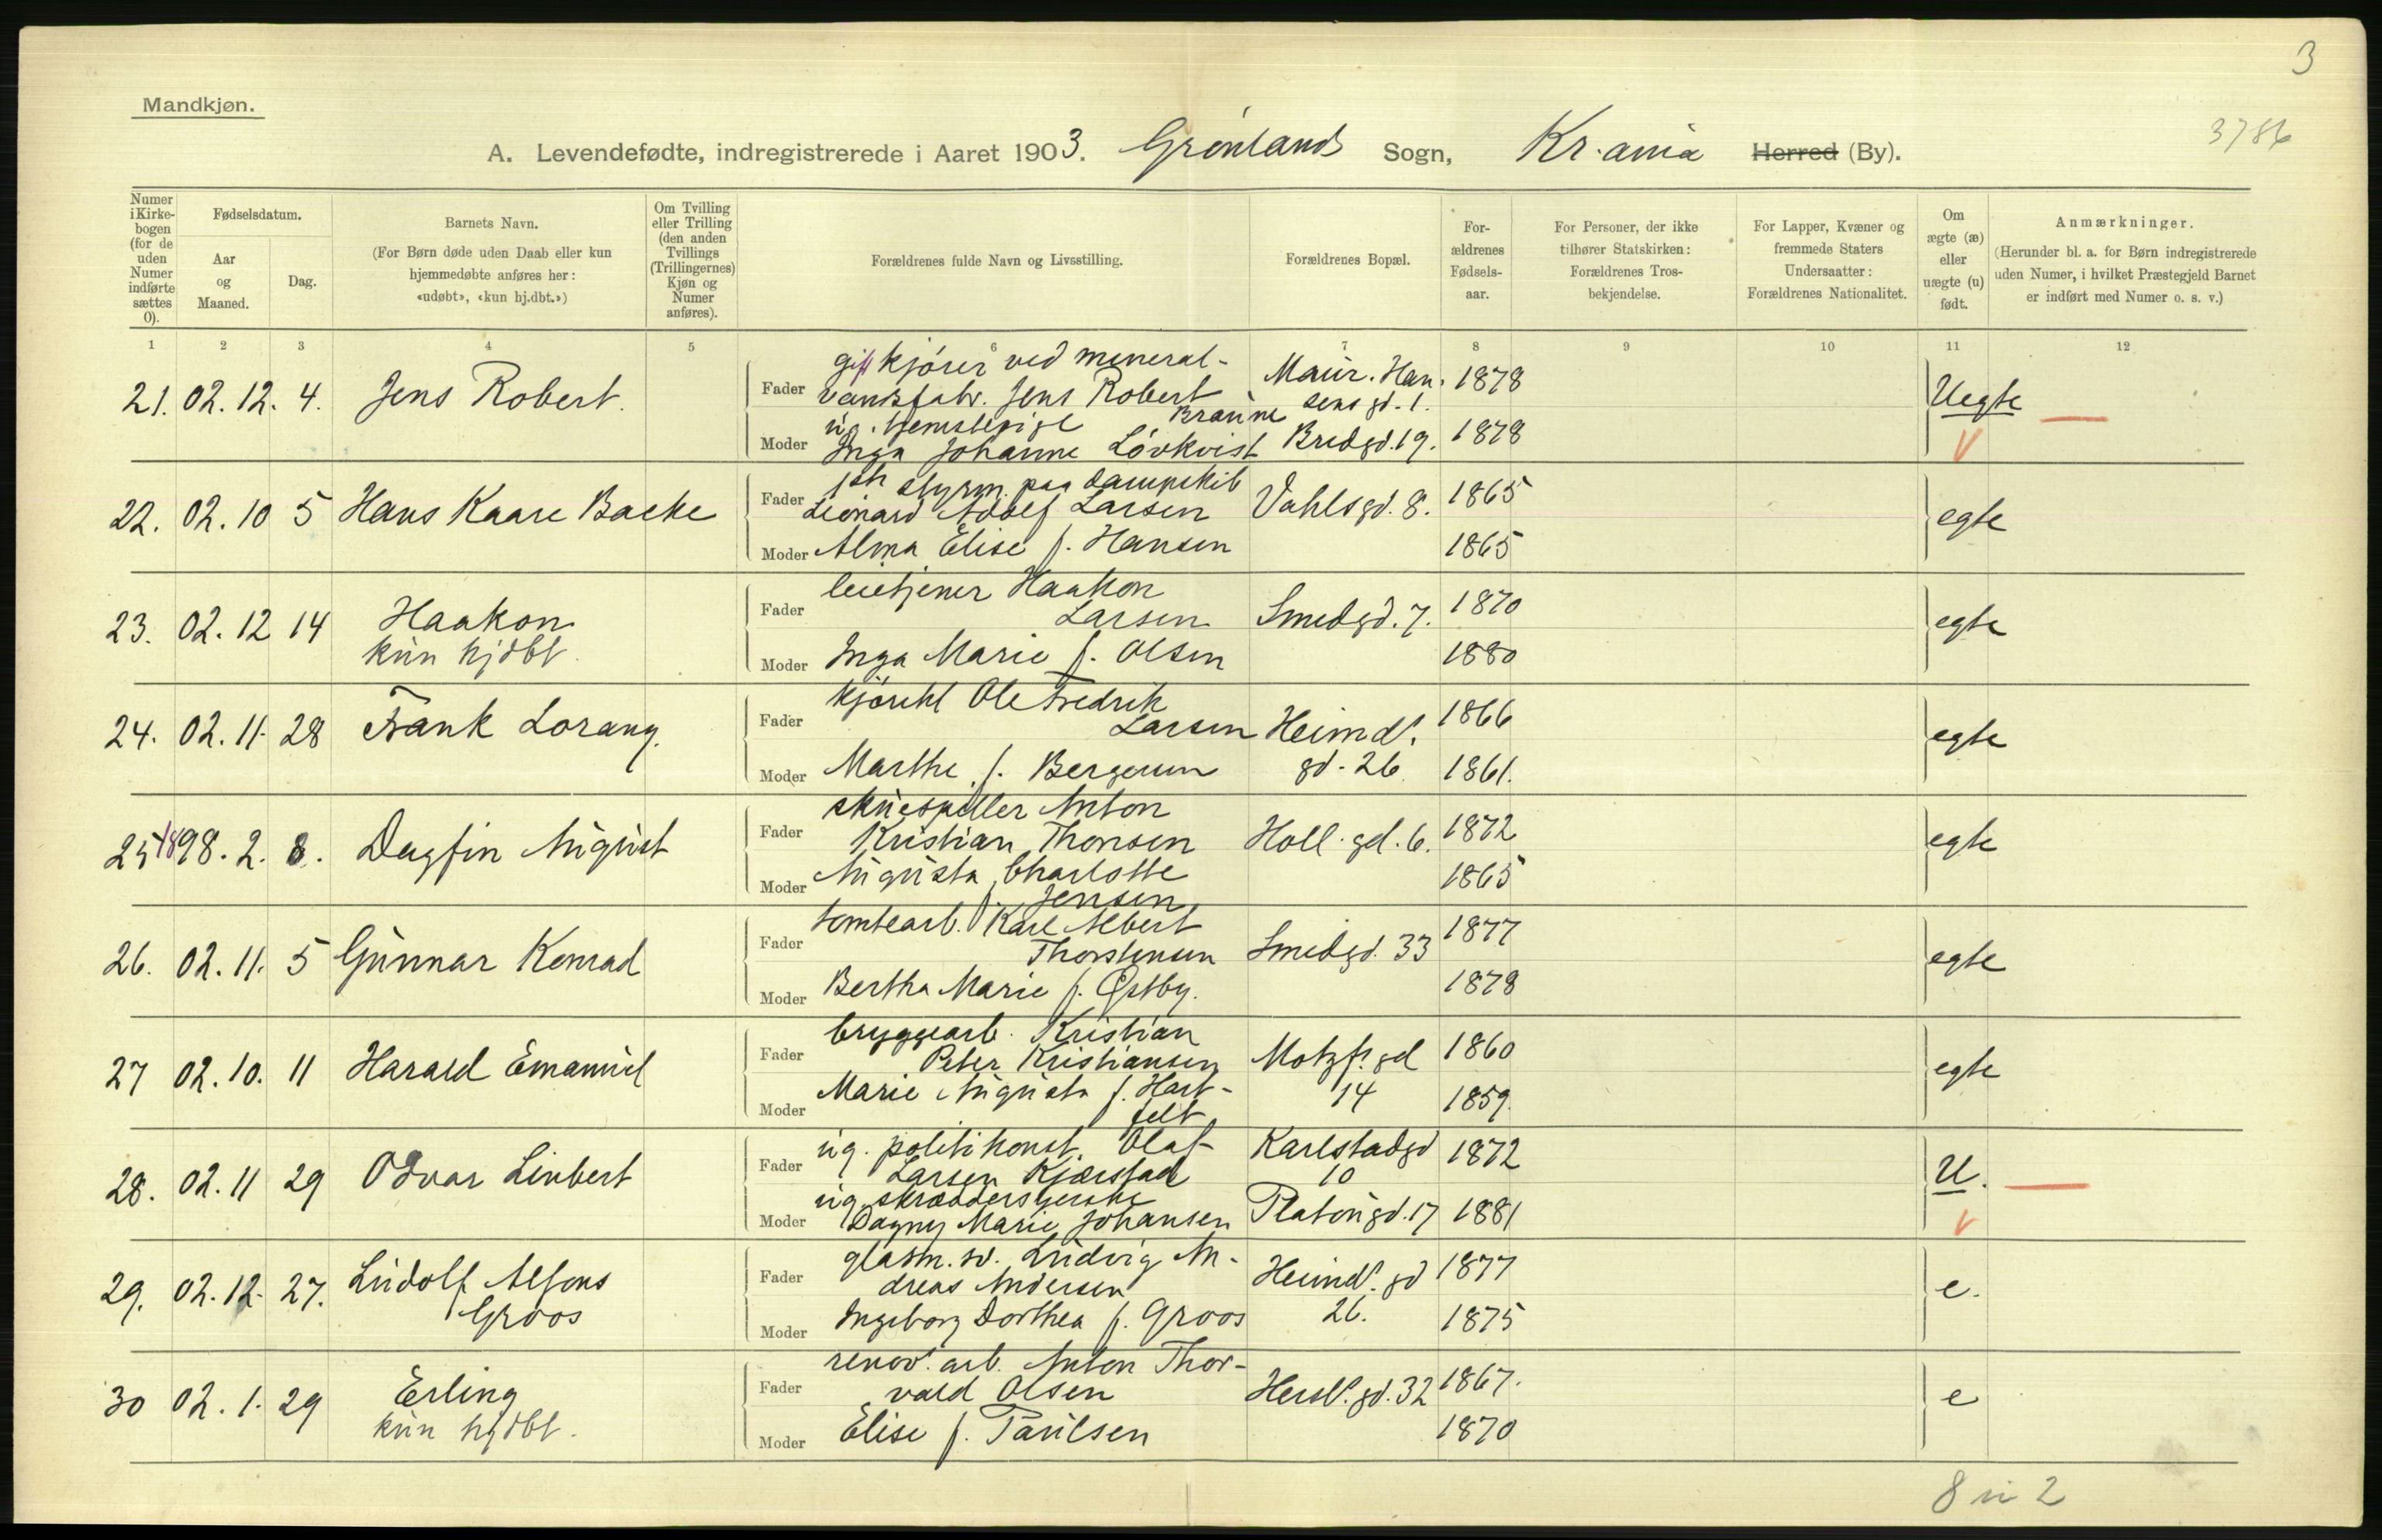 3
Mandkjøn.
3786
A. Levendefødte, indregistrerede i Aaret 1903. Grønlands Sogn, Kr.ania Herred (By).
Numer i Kirke-bogen (for de uden Numer indførte sættes 0).
Fødselsdatum.
Aar og Maaned.
Dag.
Barnets Navn.
(For Børn døde uden Daab eller kun hjemmedøbte anføres her: «udøbt», «kun hj.dbt.»)
Om Tvilling eller Trilling (den anden Tvillings (Trillingernes) Kjøn og Numer anføres).
Forældrenes fulde Navn og Livsstilling.
Forældrenes Bopæl.
For-ældrenes Fødsels-aar.
For Personer, der ikke tilhører Statskirken: Forældrenes Tros-bekjendelse.
For Lapper, Kvæner og fremmede Staters Undersaatter: Forældrenes Nationalitet.
Om ægte (æ) eller uægte (u) født.
Anmærkninger.
(Herunder bl. a. for Børn indregistrerede uden Numer, i hvilket Præstegjeld Barnet er indført med Numer o. s. v.)
1 2 3 4 5 6 7 8 9 10 11 12
21. 02. 12. 4. Jens Robert.
Fader gift kjører ved mineral-
vandsfabr. Jens Robert Braune
Maur. Han.
sens gd. 1.
1878
Uegte
Moder ug. tjenestepige
Inga Johanne Lövkvist Bredgd. 19. 1878
22. 02. 10 5 Hans Kaare Backe
Fader 1ste styrm. paa dampskib
Leonard Adolf Larsen Vahlsgd. 8. 1865
egte
Moder Alma Elise f. Hansen 1865
23. 02. 12 14 Haakon
kun hjdbt.
Fader leietjener Haakon
Larsen Smedgd. 7. 1870
egte
Moder Inga Marie f. Olsen 1880
24. 02. 11. 28 Frank Lorang.
Fader kjørekl Ole Fredrik
Larsen Heimd.
gd. 26
1866
egte
Moder Marthe f. Bergerun 1861.
25 1898. 2. 8. Dagfin August
Fader skuespiller Anton
Kristian Thonsen Holl. gd. 6. 1872
egte
Moder Augusta Charlotte
f. Jensen 1865
26. 02. 11. 5 Gunnar Konrad
Fader tomtearb. Karl Albert
Thorstensen Smedgd. 33 1877
egte
Moder Bertha Marie f. Østby. 1878
27 02. 10. 11 Harald Emanuel
Fader bryggearb. Kristian
Peter Kristiansen Motzf. gd
14
1860
egte
Moder Marie Augusta f. Hart-
felt 1859.
28. 02. 11 29 Odvar Linbert
Fader ug. politikonst. Olaf
Larsen Kjærstad Karlstadgd
10
1872
U.
Moder ug. skræddersyerske
Dagny Marie Johansen Platougd. 17 1881
29. 02. 12. 27. Ludolf Alfons
Groos
Fader glasm. sv. Ludvig An-
dreas Andersen Heimd. gd
26.
1877
e.
Moder Ingeborg Dorthea f. Groos 1875
30 02. 1. 29 Erling
kun hjdbt.
Fader renov. arb. Anton Thor-
vald Olsen Hersl. gd. 32 1867.
e
Moder Elise f. Paulsen 1870
8 u 2